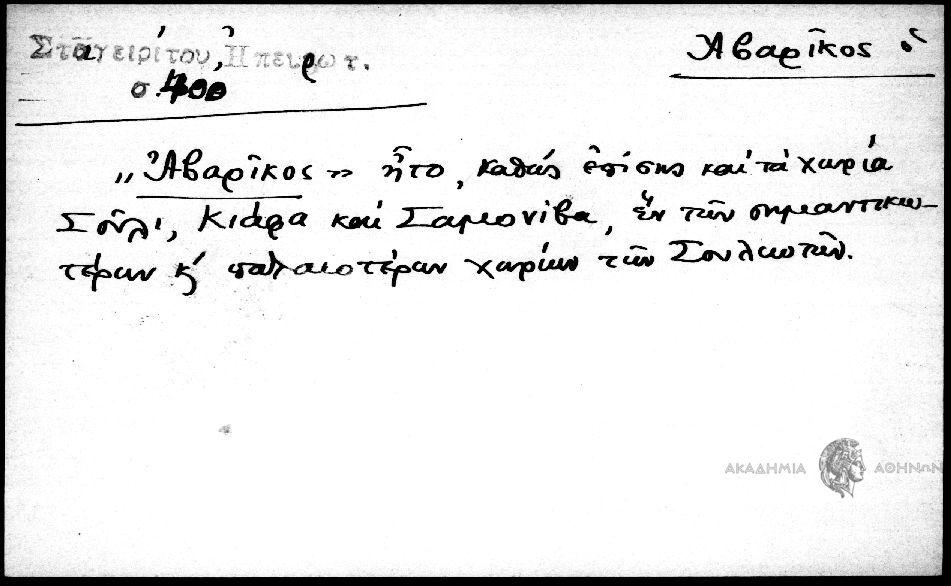 Σταγειρίτου, Ἠπειρωτ.
σ. 400
Ἀβαρῖκος ὁ
„Ἀβαρῖκος” ἦτο, καθὼς ἐπίσης καὶ τὰ χωρία
Σοῦλι, Κιάφα καὶ Σαμονίβα, ἓν τῶν σημαντικω-
τέρων κ' παλαιοτέρων χωρίων τῶν Σουλιωτῶν.
ΑΚΑΔΗΜΙΑ ΑΘΗΝΩΝ